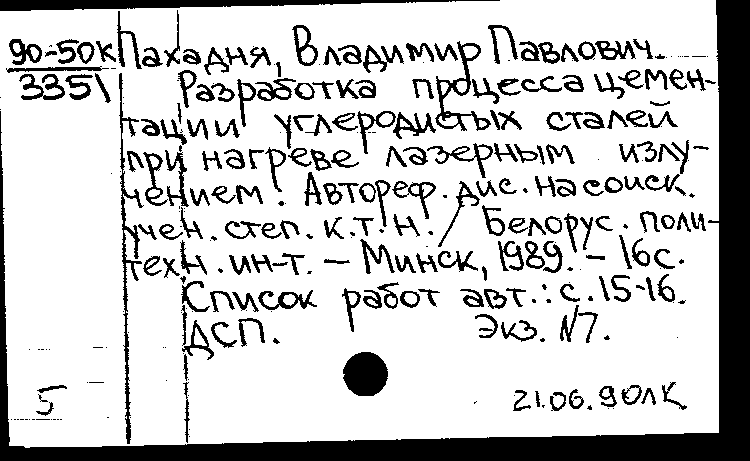 90-50к Пахадня, Владимир Павлович.
3351 Разработка процесса цемен-
тации углеродистых сталей
при нагреве лазерным излу-
чением: Автореф. дис. на соиск.
учен. степ. к.т.н. / Белорус. поли-
техн. ин-т. – Минск, 1989. – 16с.
Список работ авт.: с. 15-16.
ДСП. Экз. N7.
5 21.06.90лк